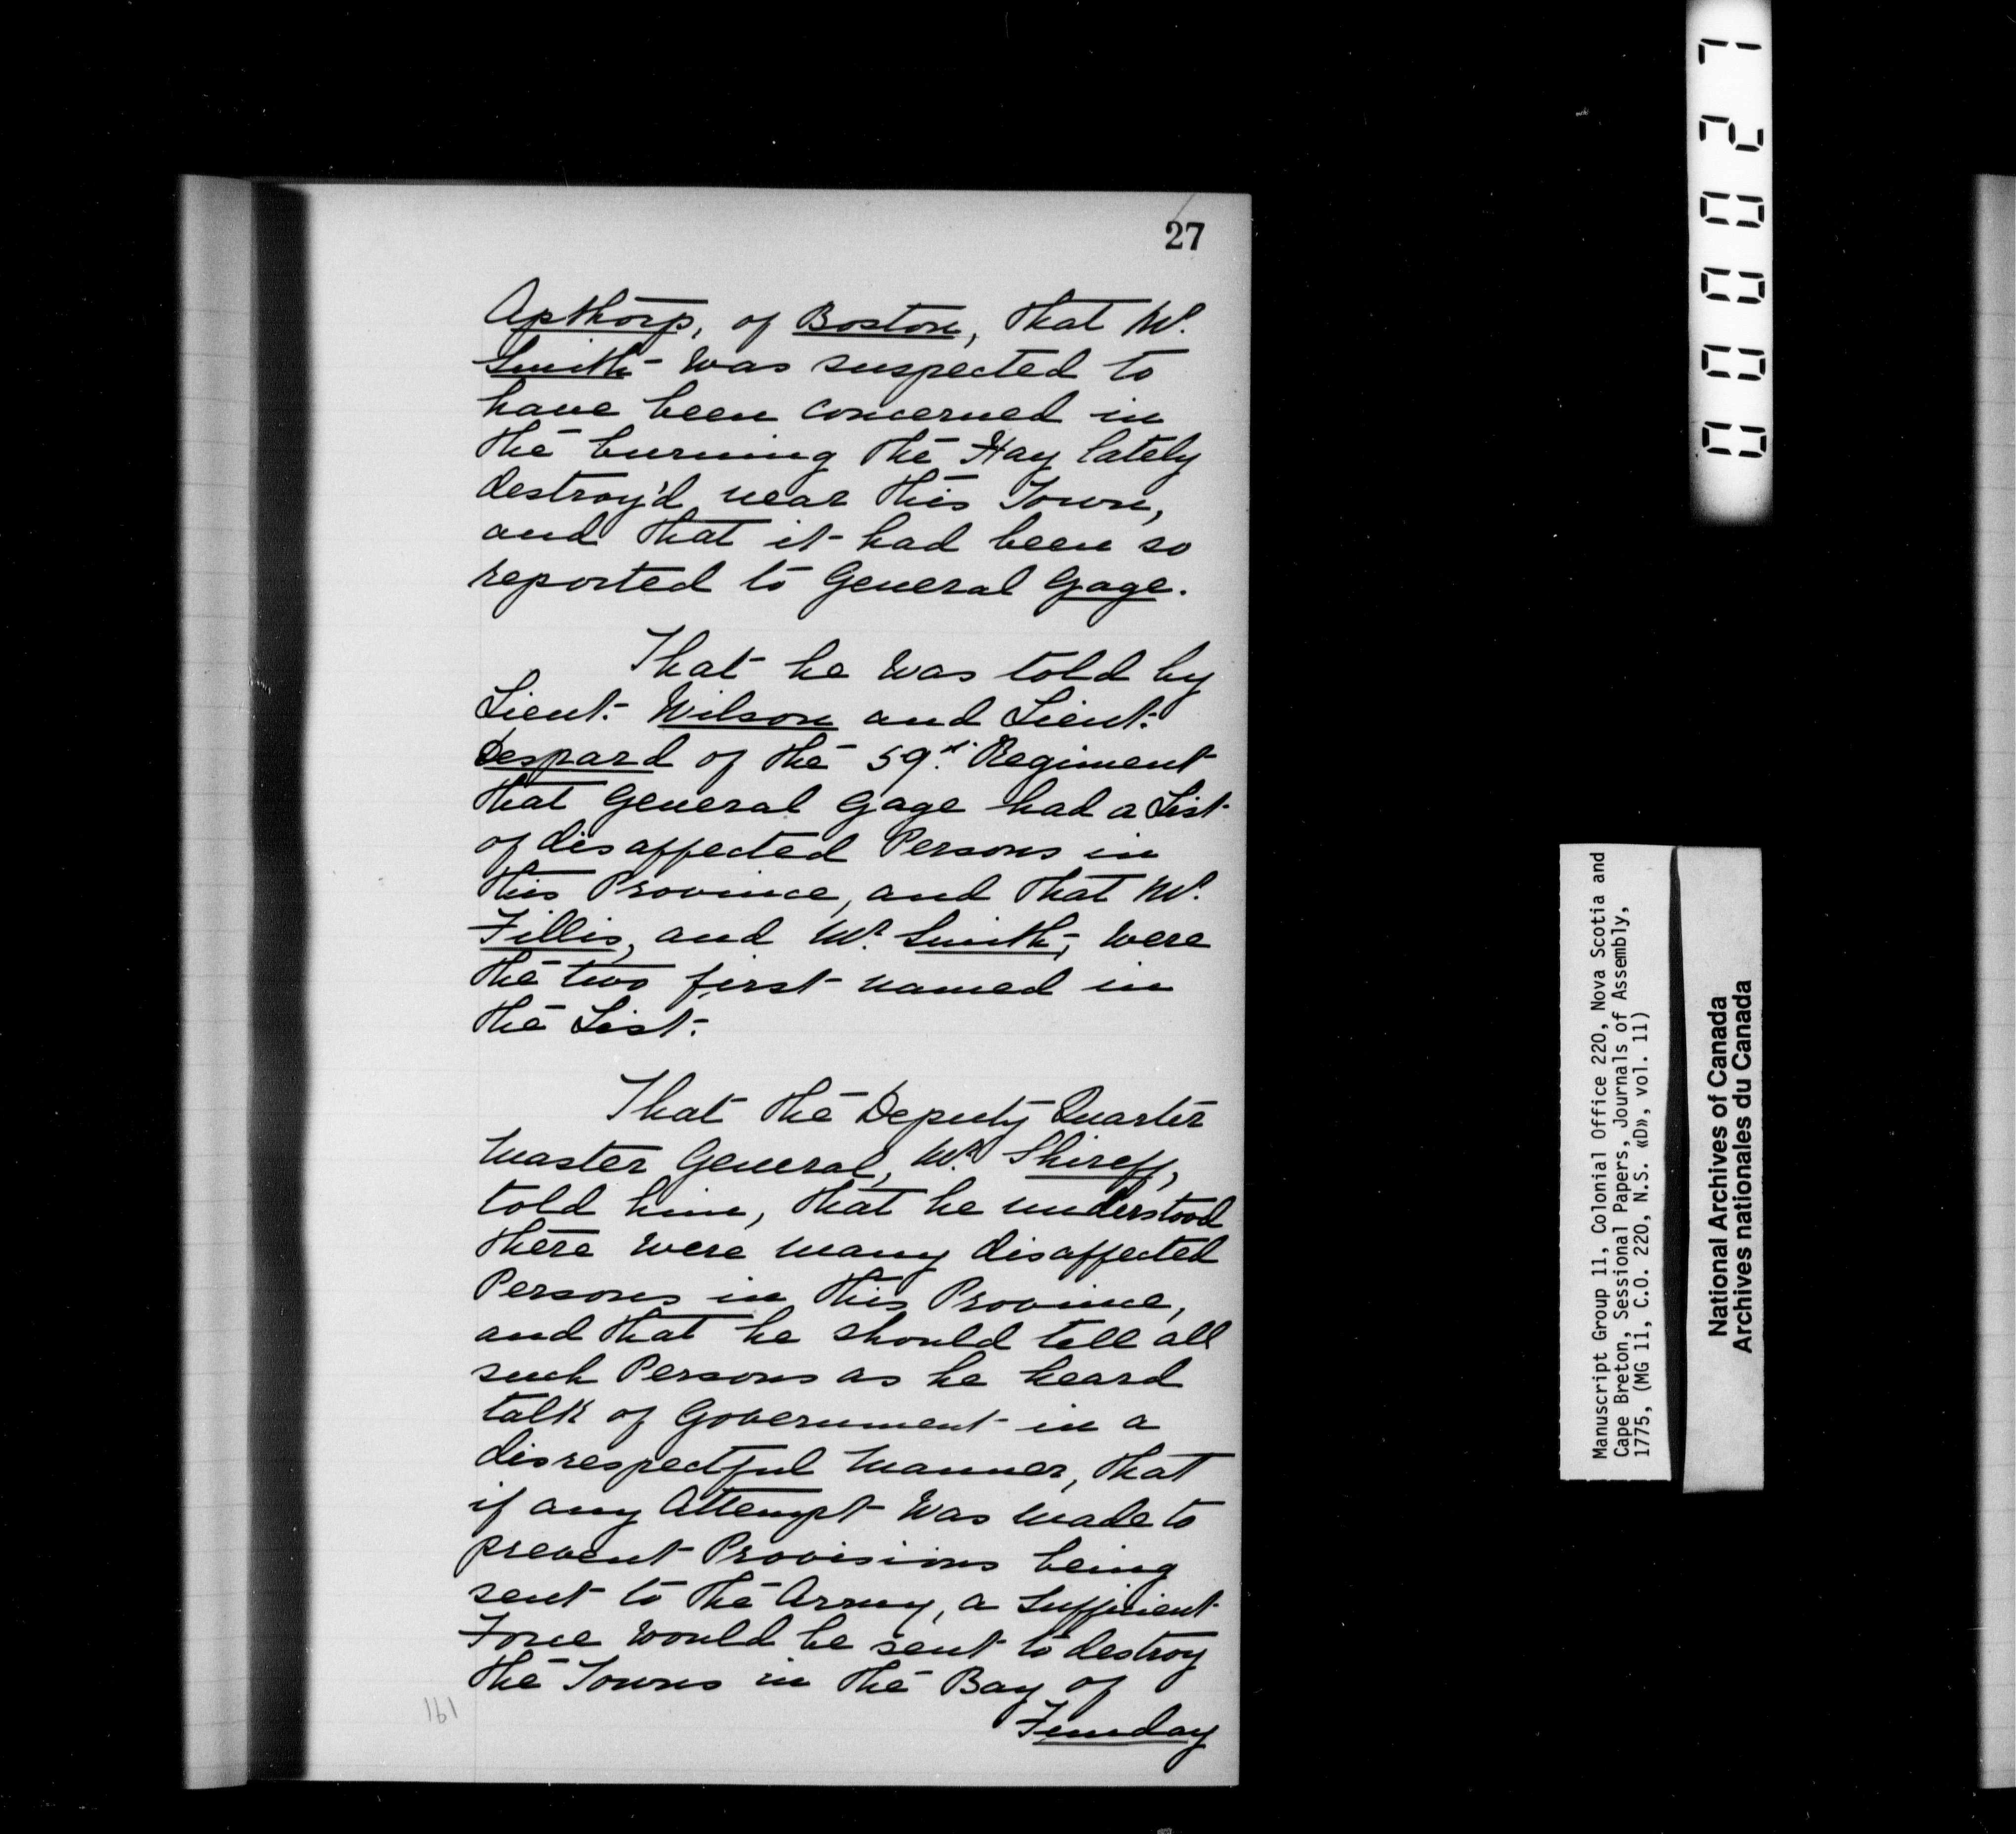 27
Apthorp, of Boston, that Mr.
Smith was suspected to
have been concerned in
the burning the Hay lately
destroy'd near this Town,
and that it had been so
reported to General Gage.
That he was told by
Lieut. Wilson and Lieut.
Despard of the 59th. Regiment
that General Gage had a List
of disaffected Persons in
this Province, and that Mr.
Fillis, and Mr. Smith, were
the two first named in
the List.
That the Deputy Quarter
Master General, Mr. Shireff,
told him, that he understood
there were many disaffected
Persons in this Province,
and that he should tell all
such Persons as he heard
talk of Government in a
disrespectful Manner, that
if any Attempt was made to
prevent Provisions being
sent to the Army, a sufficient
Force would be sent to destroy
the Towns in the Bay of
Funday
161
000027
Manuscript Group 11, Colonial Office 220, Nova Scotia and
Cape Breton, Sessional Papers, Journals of Assembly,
1775, (MG 11, C.O. 220, N.S. «D», vol. 11)
National Archives of Canada
Archives nationales du Canada